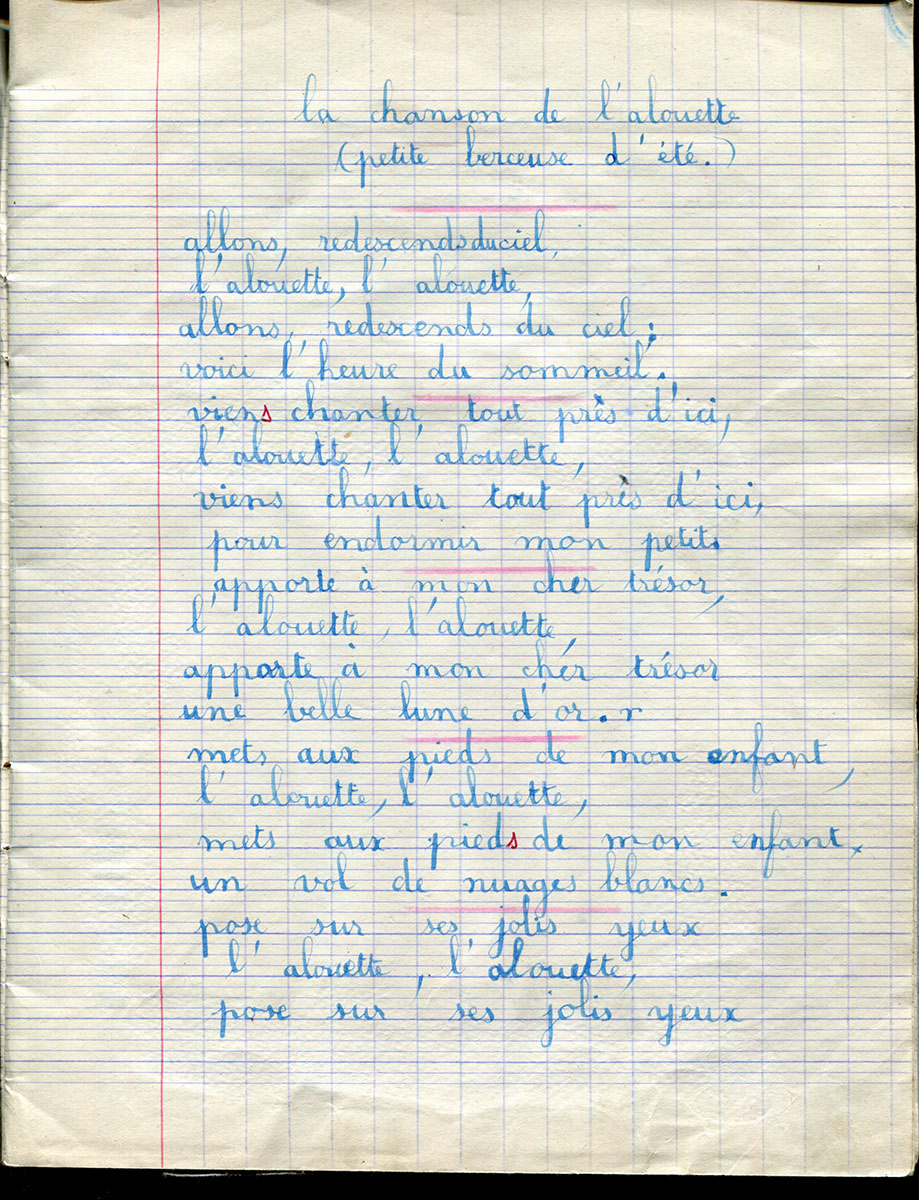 la chanson de l'alouette
(petite berceuse d'été.)
allons, redescendsduciel,
l'alouette, l'alouette,
allons, redescends du ciel;
voici l'heure du sommeil.
viens chanter tout près d'ici,
l'alouette, l'alouette,
viens chanter tout près d'ici,
pour endormir mon petit.
apporte à mon cher trésor,
l'alouette, l'alouette,
apparte à mon chér trésor
une belle lune d'or. r
mets aux pieds de mon enfant,
l'alouette, l'alouette,
mets aux pieds de mon enfant,
un vol de nuages blancs.
pose sur ses jolis yeux
l'alouette, l'alouette,
pose sur ses jolis yeux